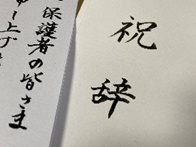 祝辞
保護者の皆さま
申し上げ